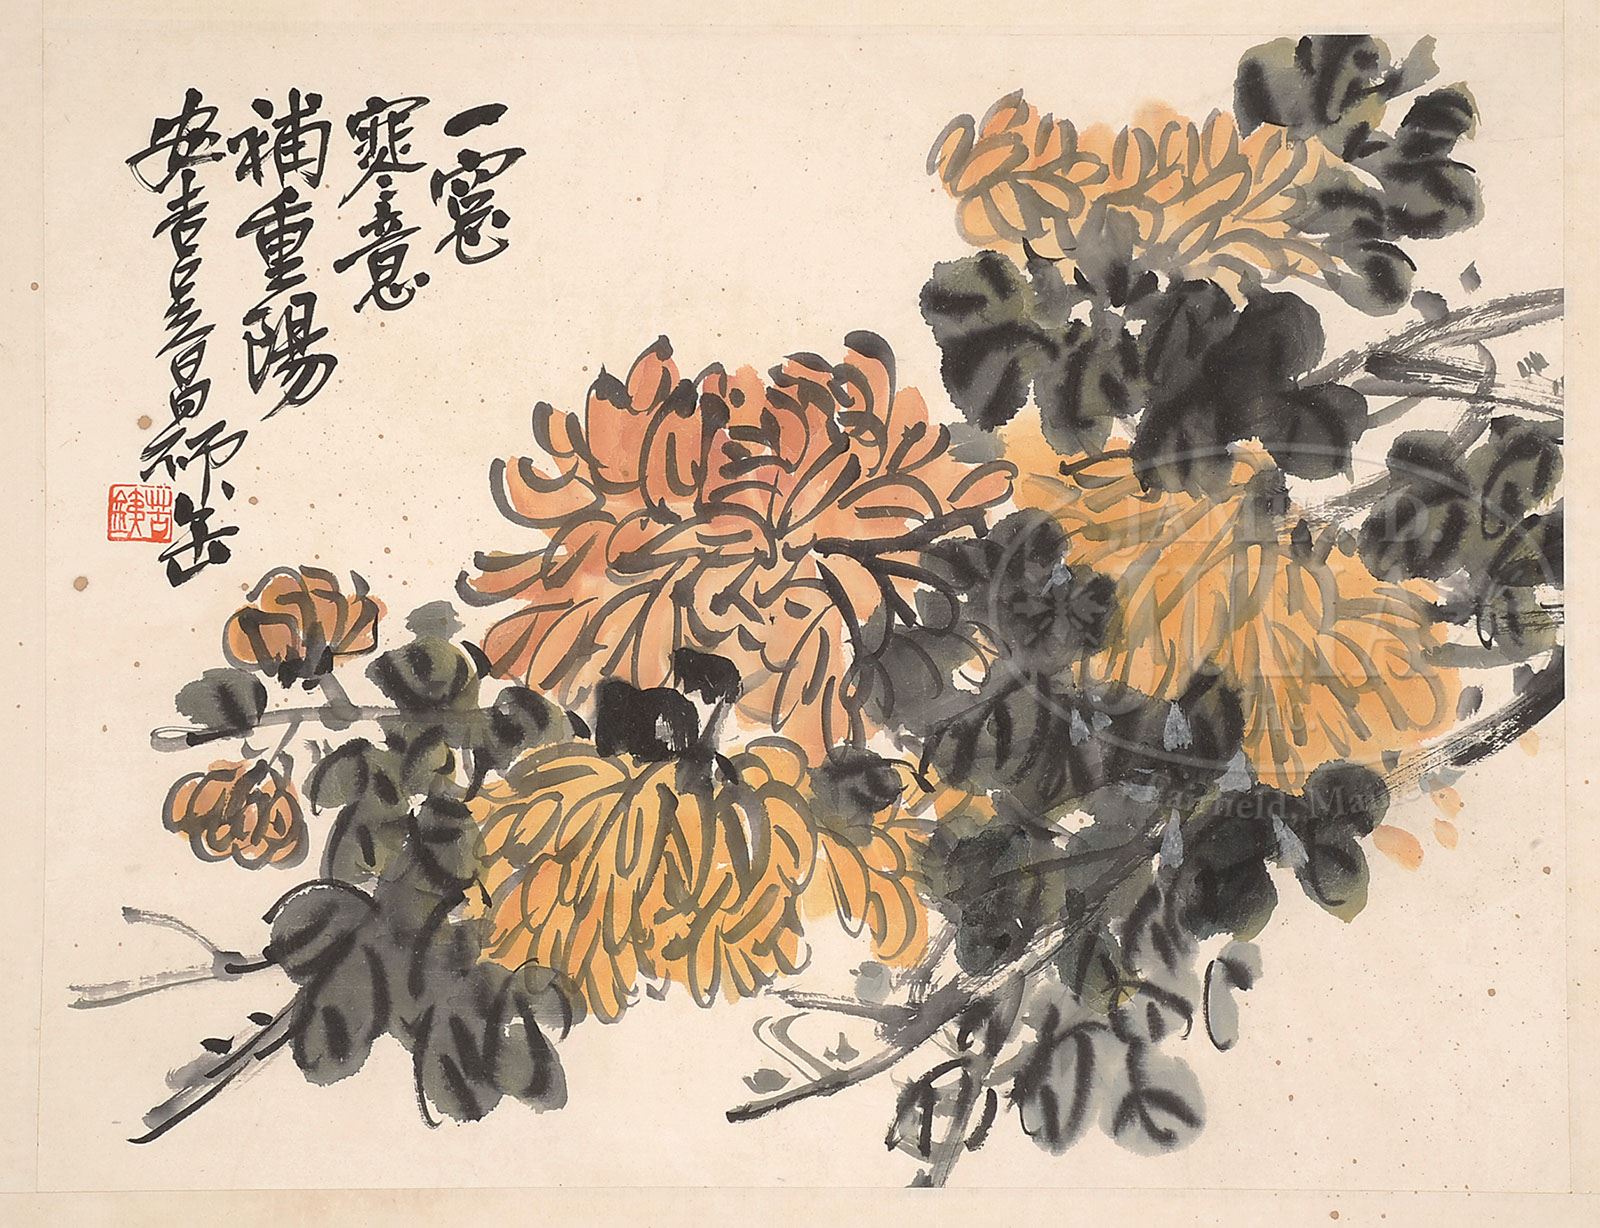 一窻
寒意
補重陽
安吉吳昌碩缶
苦鐵
JAMES D.
JULIA
Inc.
Fairfield, Maine